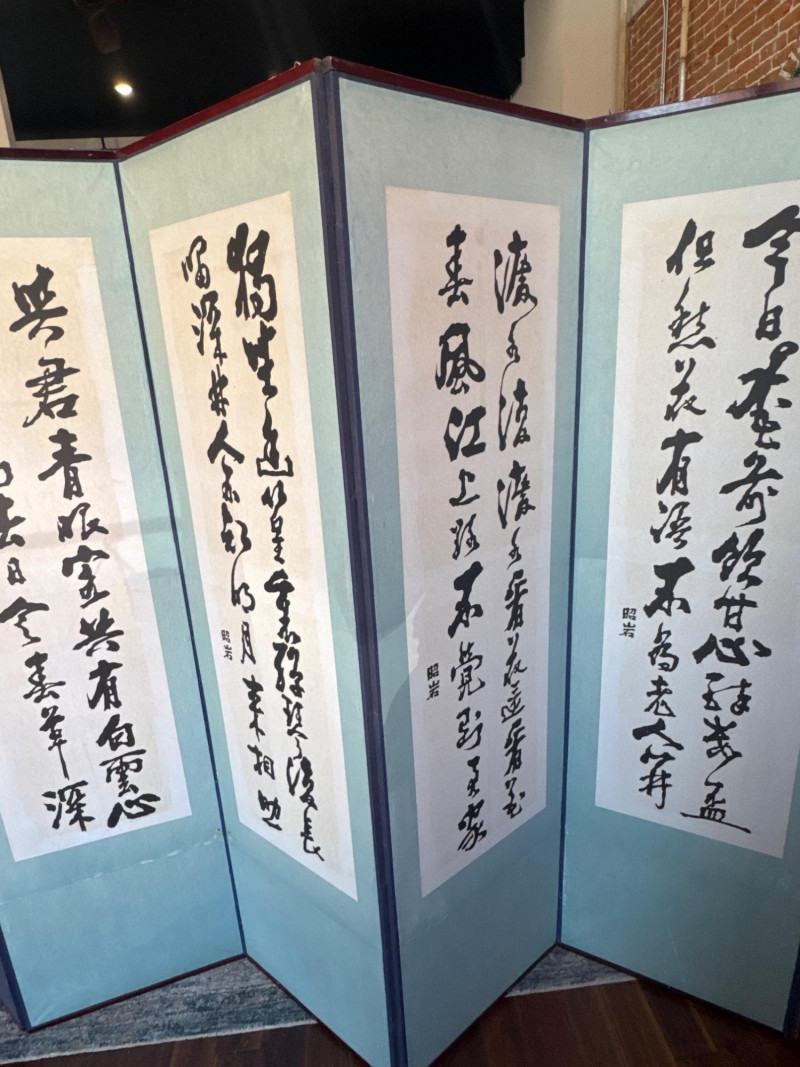 今日花前飲甘心醉數盃
但愁花有語不為老人開
昭岩
渡水復渡水看花還看花
春風江上路不覺到君家
昭岩
獨坐幽篁裏彈琴復長
嘯深林人不知明月來相照
昭岩
共君青眼客共有白雲心
去日令春草深